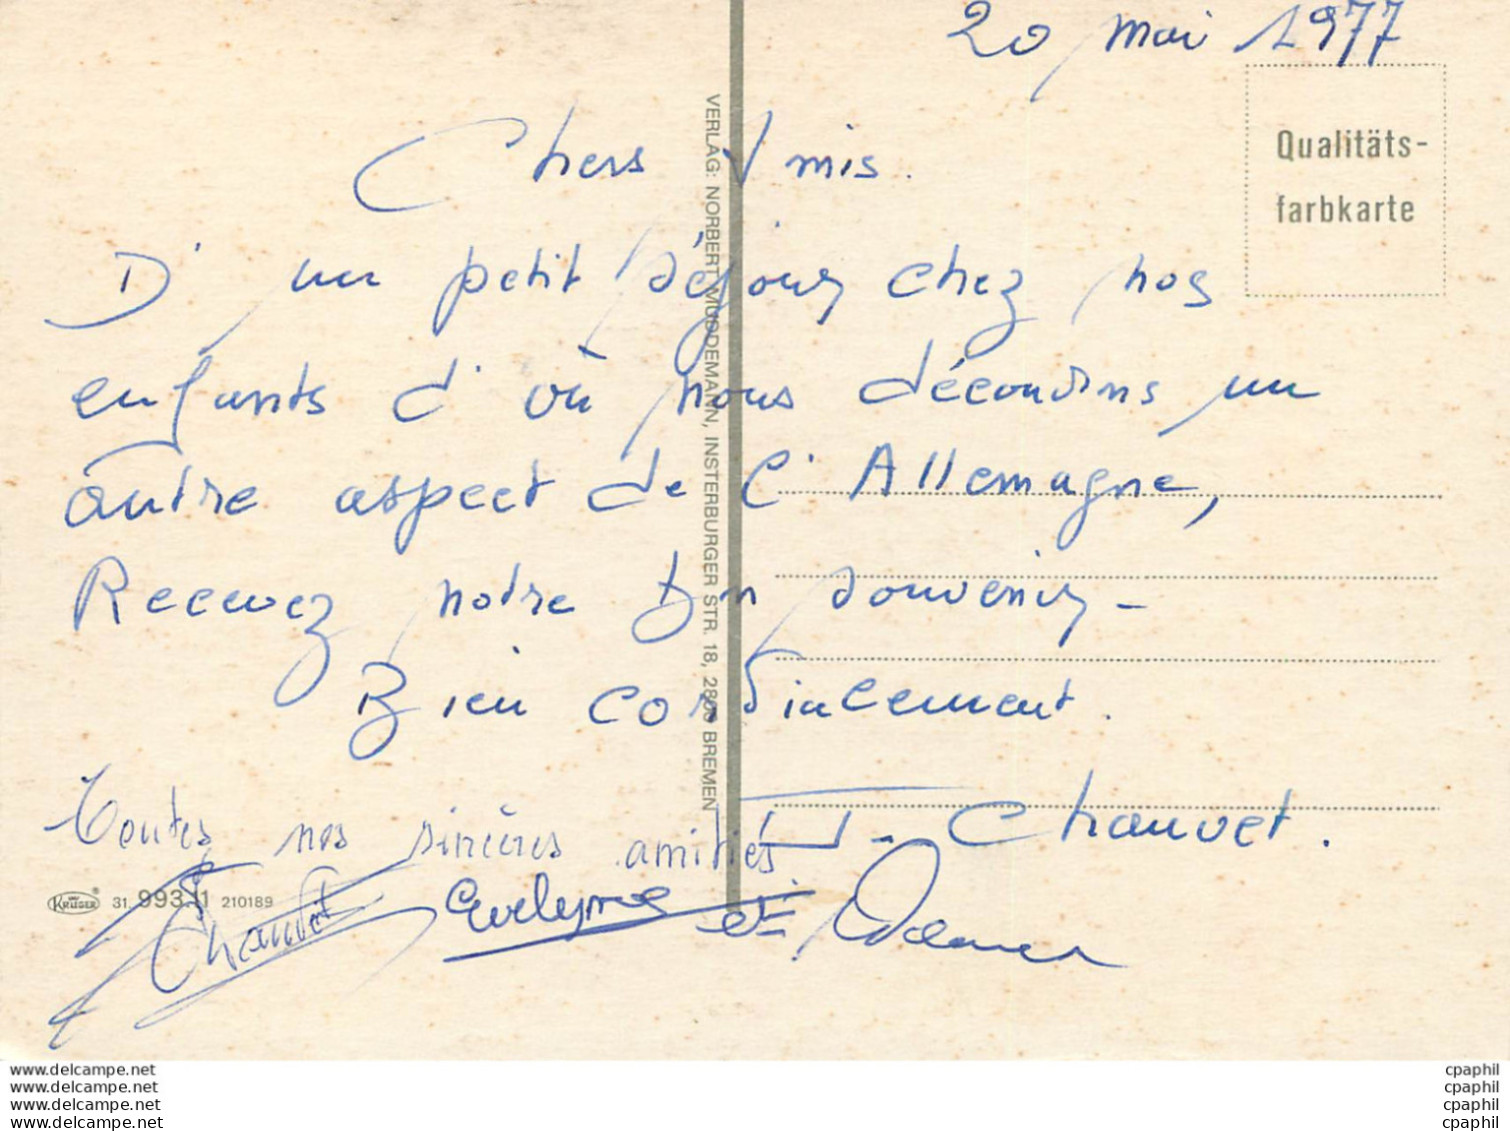 20 mai 1977
Chers Amis.
D'un petit séjour chez nos
enfants d'où nous découvrons un
autre aspect de l'Allemagne,
Recevez notre bon souvenir -
Bien cordialement.
J. Chauvet.
Toutes nos sincères amitiés
Chauvet
Evelyne et
Qualitäts-
farbkarte
VERLAG: NORBERT MÜDDEMANN, INSTERBURGER STR. 18, 2800 BREMEN
KRÜGER ® 31. 993.11 210189
www.delcampe.net
www.delcampe.net
www.delcampe.net
www.delcampe.net
cpaphil
cpaphil
cpaphil
cpaphil